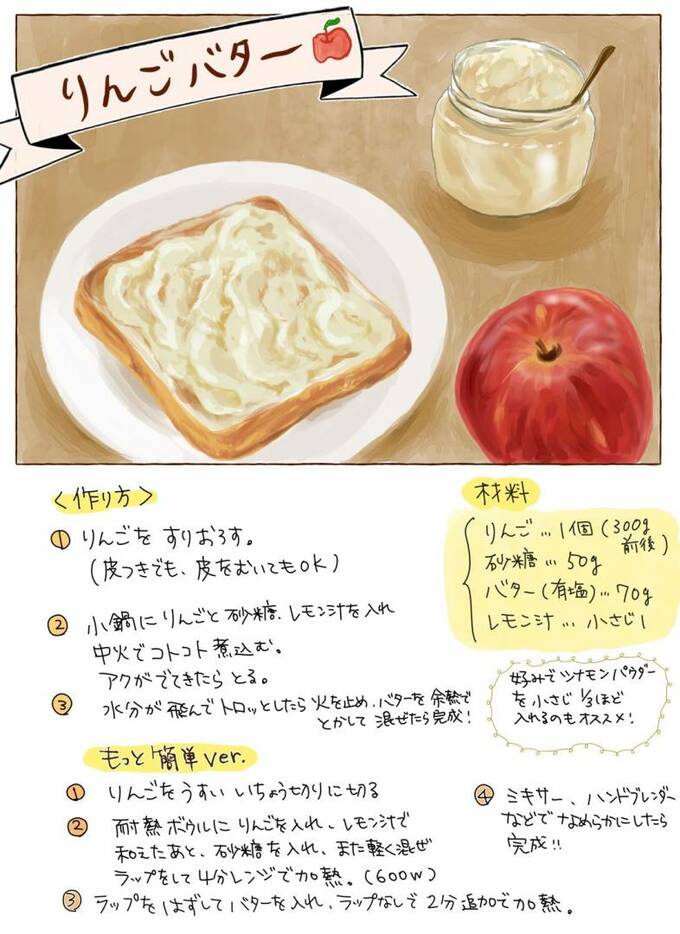 りんごバター
<作り方>
① りんごを すりおろす。
(皮つきでも、皮をむいてもOK)
② 小鍋に りんごと 砂糖、レモン汁を入れ
中火でコトコト 煮込む。
アクがでてきたら とる。
③ 水分が 飛んで トロッとしたら 火を止め、バターを 余熱で
とかして 混ぜたら 完成!
材料
りんご…1個(300g
前後)
砂糖…50g
バター(有塩)…70g
レモン汁… 小さじ1
好みで シナモンパウダー
を 小さじ 1/3ほど
入れるのも オススメ!
もっと 簡単 ver.
① りんごを うすい いちょう切りに切る
② 耐熱ボウルに りんごを入れ、レモン汁で
和えたあと、砂糖を入れ、また軽く混ぜ
ラップをして 4分レンジで加熱。(600W)
③ ラップを はずして バターを入れ、ラップなしで 2分 追加で加熱。
④ ミキサー、ハンドブレンダー
などで なめらかにしたら
完成!!